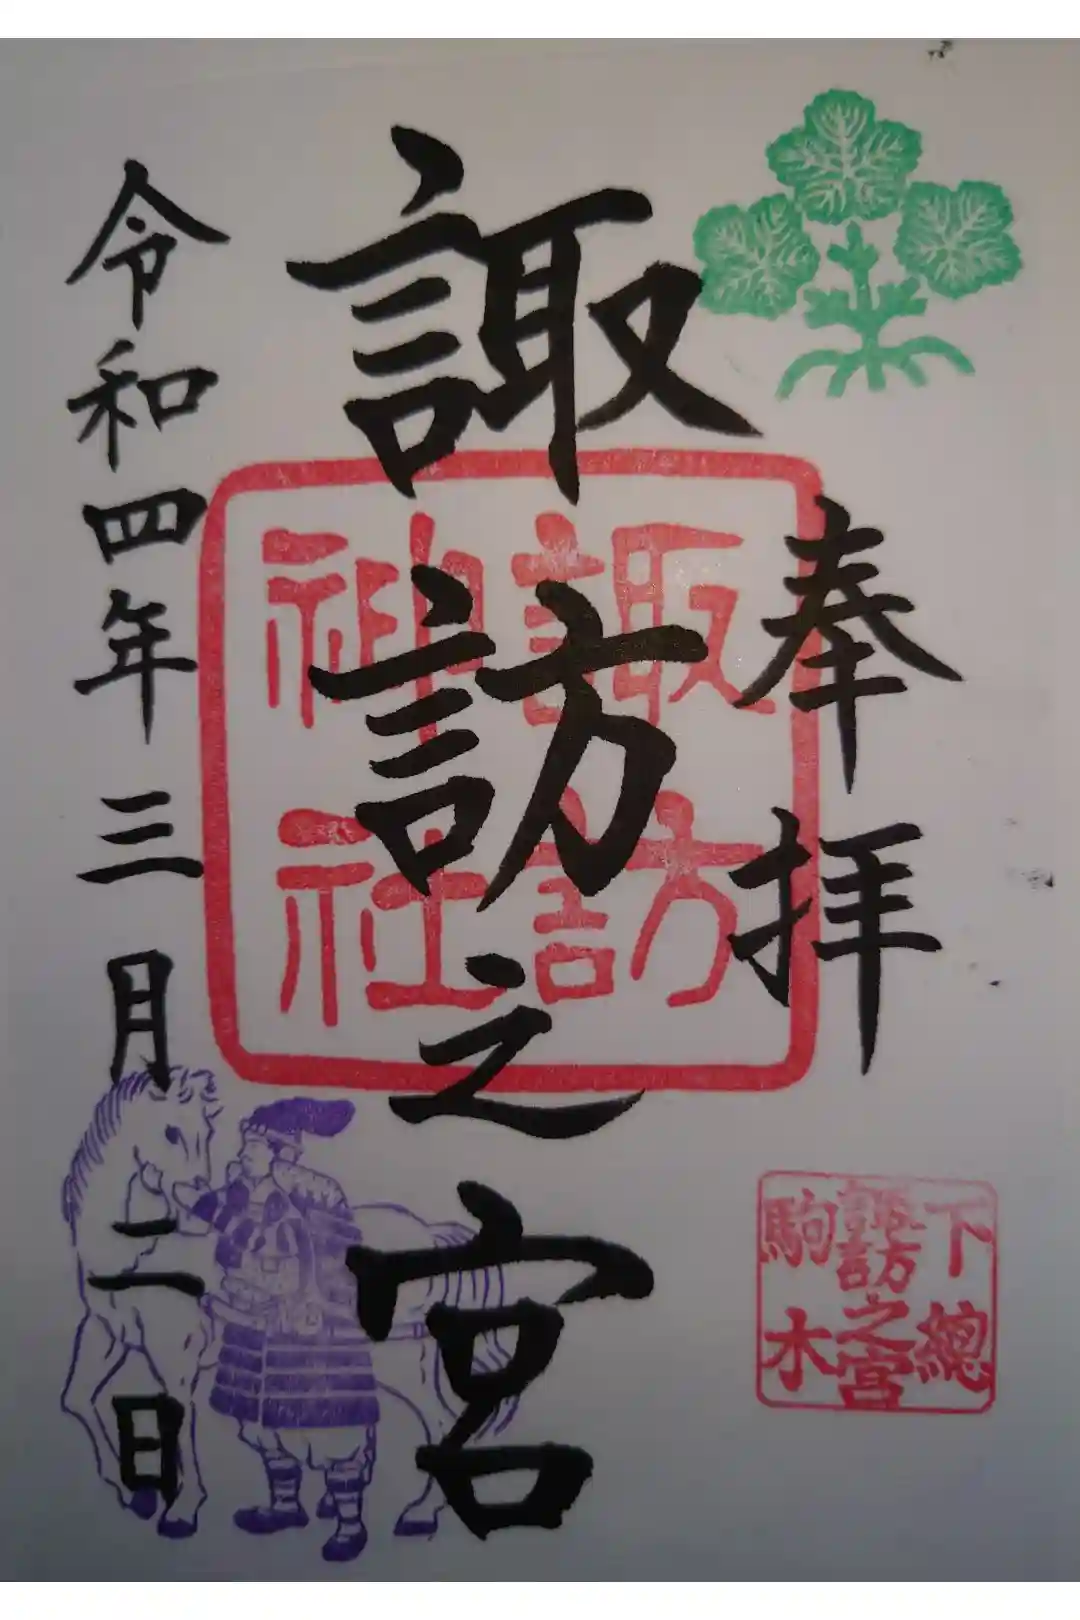 奉拝
諏訪之宮
諏訪
神社
令和四年三月二日
下總
諏訪之宮
駒木